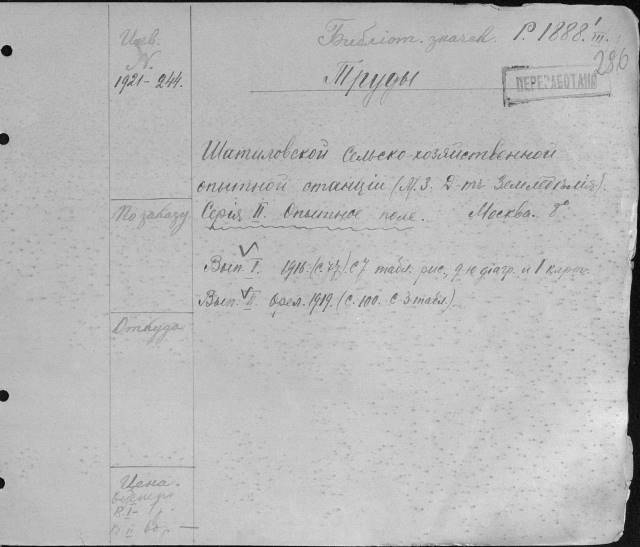 Инв.
N.
1921-244.
Библіот. значек. P. 1888. III.
286
Труды
ПЕРЕРАБОТАНО
Шатиловской Сельско-хозяйственной
опытной станціи (М. З. Д-тъ Земледѣлія).
По заказу
Серія II. Опытное поле. Москва. 8°
Вып. I. 1916. С 7 табл. рис., діагр. и 1 карт.
Вып. II. Орел. 1919. (С. 100. С 3 табл.).
Откуда
Цена.